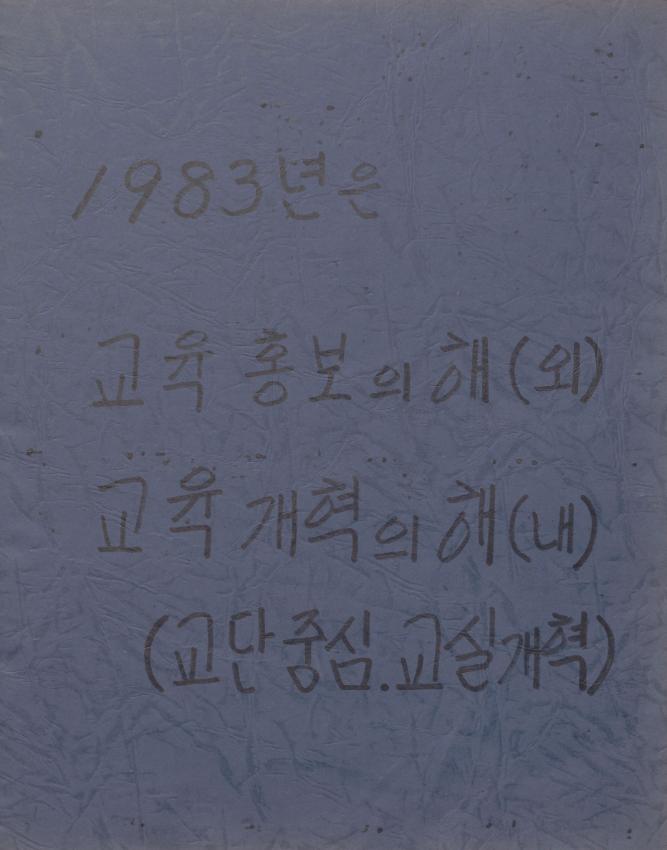 1983년은
교육 홍보의 해(외)
교육 개혁의 해(내)
(교단 중심.교실개혁)